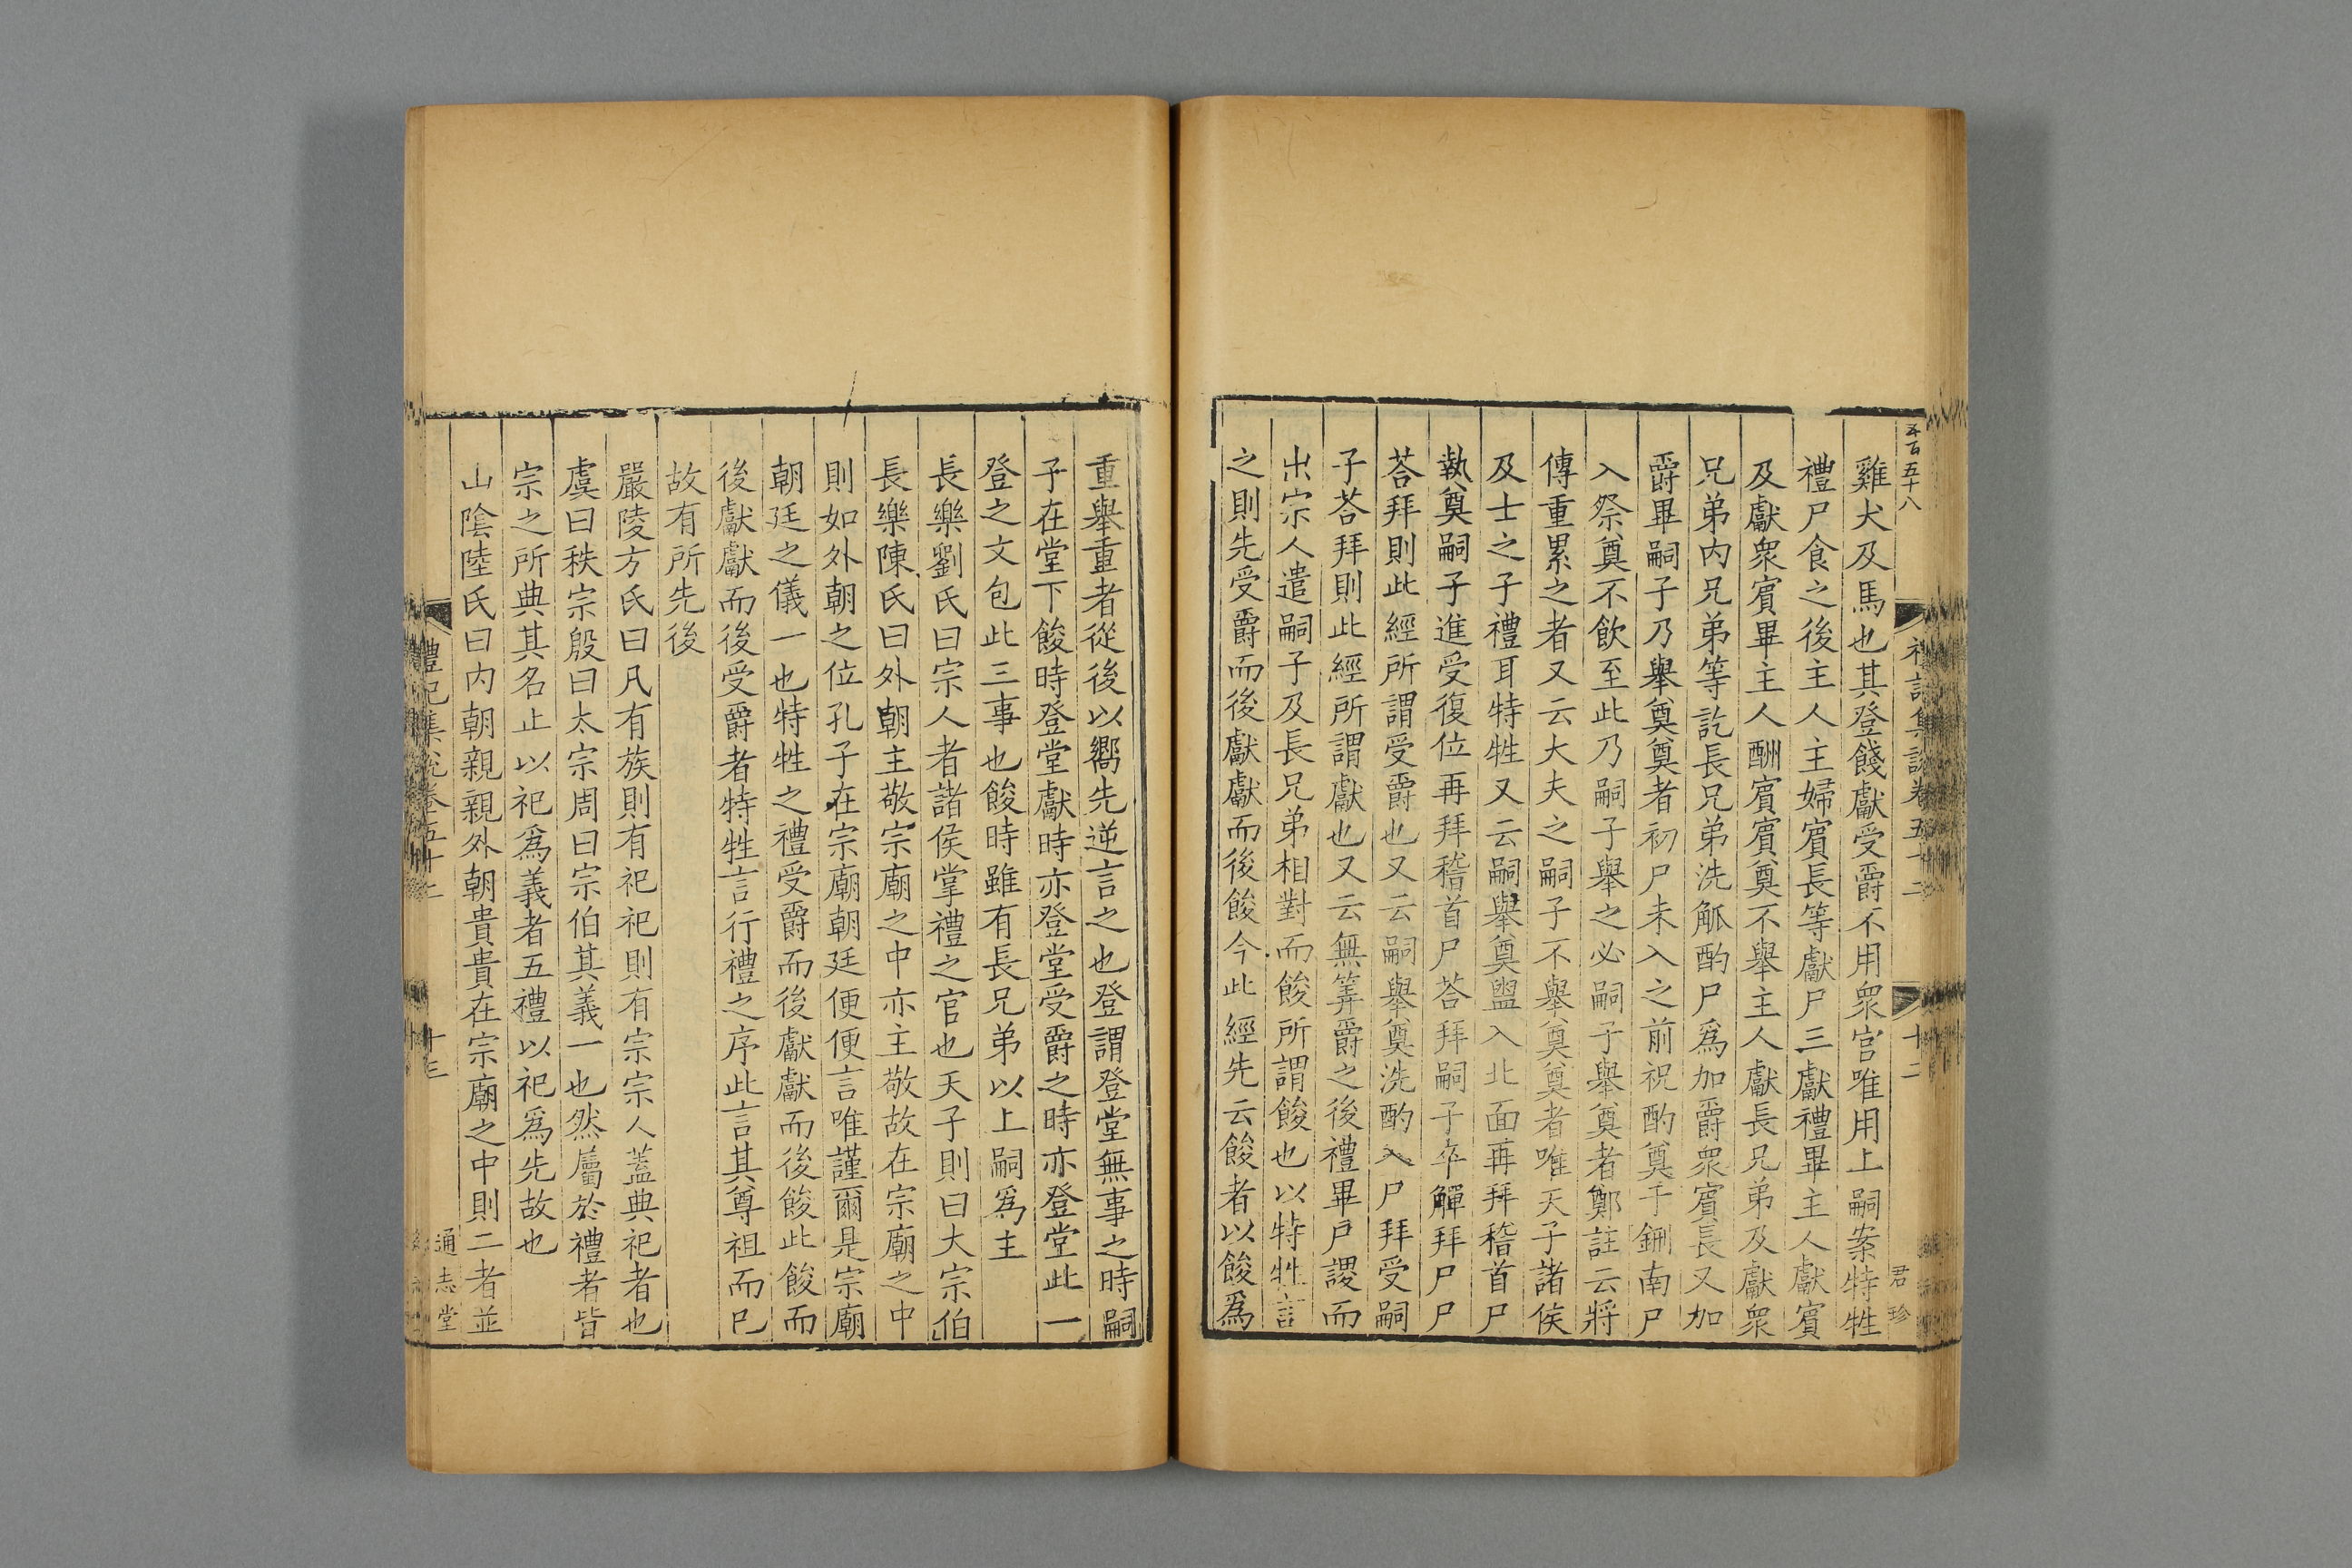 五百五十八
禮記集說卷五十二
十二
君珍
雞犬及馬也其登餕獻受爵不用衆官唯用上嗣案特牲
禮尸食之後主人主婦賓長等獻尸三獻禮畢主人獻賓
及獻衆賓畢主人酬賓賓奠不舉主人獻長兄弟及獻衆
兄弟內兄弟等訖長兄弟洗觚酌尸爲加爵衆賓長又加
爵畢嗣子乃舉奠奠者初尸未入之前祝酌奠于鉶南尸
入祭奠不飲至此乃嗣子舉之必嗣子舉奠者鄭註云將
傳重累之者又云大夫之嗣子不舉奠奠者唯天子諸侯
及士之子禮耳特牲又云嗣舉奠盥入北面再拜稽首尸
執奠嗣子進受復位再拜稽首尸荅拜嗣子卒觶拜尸尸
荅拜則此經所謂受爵也又云嗣舉奠洗酌入尸拜受嗣
子荅拜則此經所謂獻也又云無筭爵之後禮畢尸謖而
出宗人遣嗣子及長兄弟相對而餕所謂餕也以特牲言
之則先受爵而後獻獻而後餕今此經先云餕者以餕爲
重舉重者從後以嚮先逆言之也登謂登堂無事之時嗣
子在堂下餕時登堂獻時亦登堂受爵之時亦登堂此一
登之文包此三事也餕時雖有長兄弟以上嗣爲主
長樂劉氏曰宗人者諸侯掌禮之官也天子則曰大宗伯
長樂陳氏曰外朝主敬宗廟之中亦主敬故在宗廟之中
則如外朝之位孔子在宗廟朝廷便便言唯謹爾是宗廟
朝廷之儀一也特牲之禮受爵而後獻獻而後餕此餕而
後獻獻而後受爵者特牲言行禮之序此言其尊祖而已
故有所先後
嚴陵方氏曰凡有族則有祀祀則有宗宗人蓋典祀者也
虞曰秩宗殷曰太宗周曰宗伯其義一也然屬於禮者皆
宗之所典其名止以祀爲義者五禮以祀爲先故也
山陰陸氏曰內朝親親外朝貴貴在宗廟之中則二者並
禮記集說卷五十二
十三
通志堂